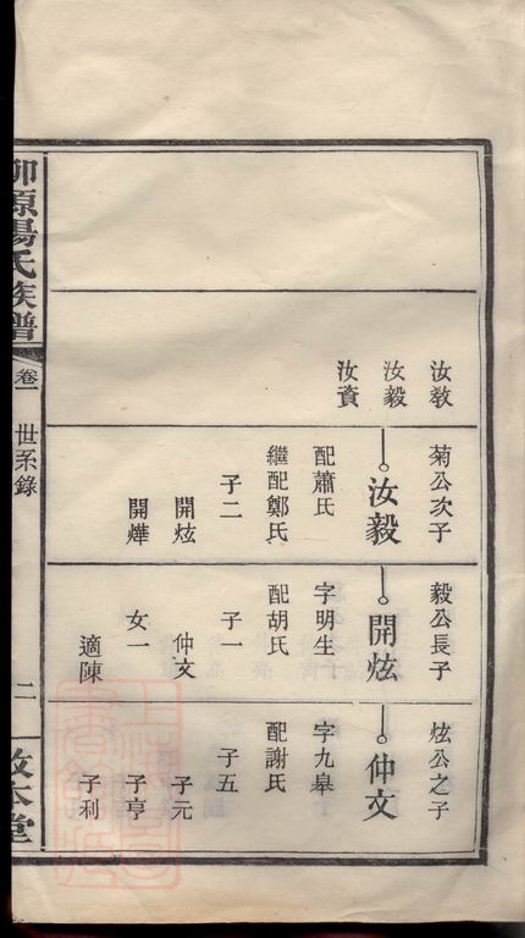 汝敎
汝毅
汝資
菊公次子
汝毅
配蕭氏
繼配鄭氏
子二
開炫
開燁
毅公長子
開炫
字明生
配胡氏
子一
仲文
女一
適陳
炫公之子
仲文
字九皋
配謝氏
子五
子元
子亨
子利
原楊氏族譜
卷一
世系錄
二
本堂